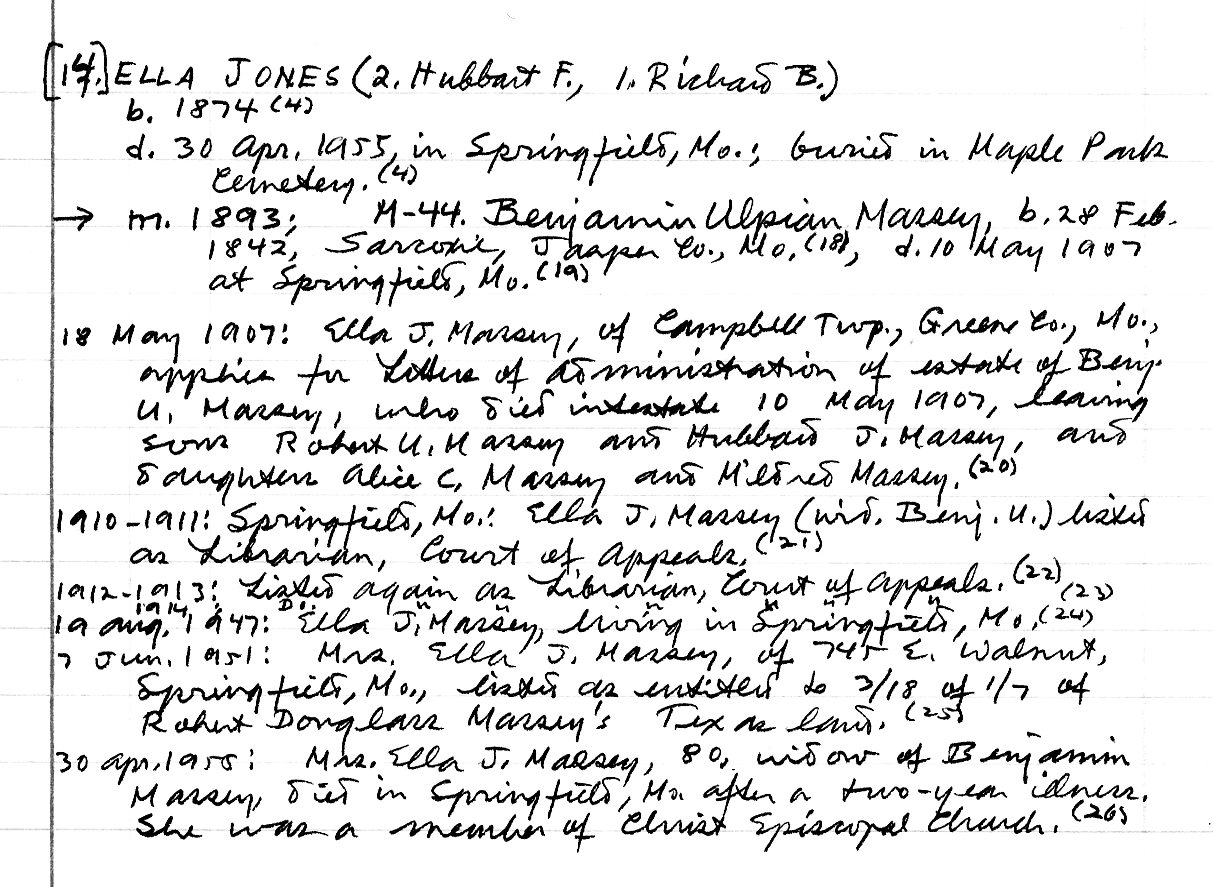 [14.] ELLA JONES (2. Hubbart F., 1. Richard B.)
b. 1874 (4)
d. 30 Apr. 1955, in Springfield, Mo.; buried in Maple Park
Cemetery. (4)
→ m. 1893; M-44. Benjamin Ulpian Massey, b. 28 Feb.
1842, Sarcoxie, Jasper Co., Mo. (18), d. 10 May 1907
at Springfield, Mo. (19)
18 May 1907: Ella J. Massey, of Campbell Twp., Greene Co., Mo.,
applies for Letters of Administration of estate of Benj.
U. Massey, who died intestate 10 May 1907, leaving
sons Robert U. Massey and Hubbard J. Massey, and
daughters Alice C. Massey and Mildred Massey. (20)
1910-1911: Springfield, Mo.: Ella J. Massey (wid. Benj. U.) listed
as Librarian, Court of Appeals. (21)
1912-1913: Listed again as Librarian, Court of Appeals. (22)
1914: Do. " " " " " " (23)
19 Aug. 1947: Ella J. Massey, living in Springfield, Mo. (24)
7 Jun. 1951: Mrs. Ella J. Massey, of 745 E. Walnut,
Springfield, Mo., listed as entitled to 3/18 of 1/7 of
Robert Douglass Massey's Texas land. (25)
30 Apr. 1955: Mrs. Ella J. Massey, 80, widow of Benjamin
Massey, died in Springfield, Mo. after a two-year illness.
She was a member of Christ Episcopal Church. (26)